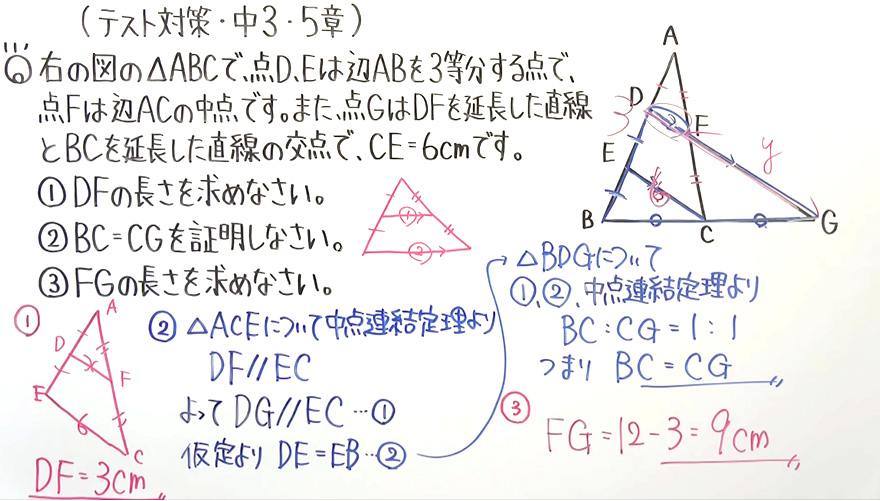 (テスト対策・中3・5章)
右の図の△ABCで、点D、Eは辺ABを3等分する点で、
点Fは辺ACの中点です。また、点GはDFを延長した直線
とBCを延長した直線の交点で、CE=6cmです。
①DFの長さを求めなさい。
②BC=CGを証明しなさい。
③FGの長さを求めなさい。
①
②
A
D
3
3
F
E
6
y
B
C
G
①
A
D
x
F
E
6
C
DF=3cm
② △ACEについて中点連結定理より
DF//EC
よって DG//EC…①
仮定より DE=EB…②
△BDGについて
①、②、中点連結定理より
BC:CG=1:1
つまり BC=CG
③
FG=12-3=9cm